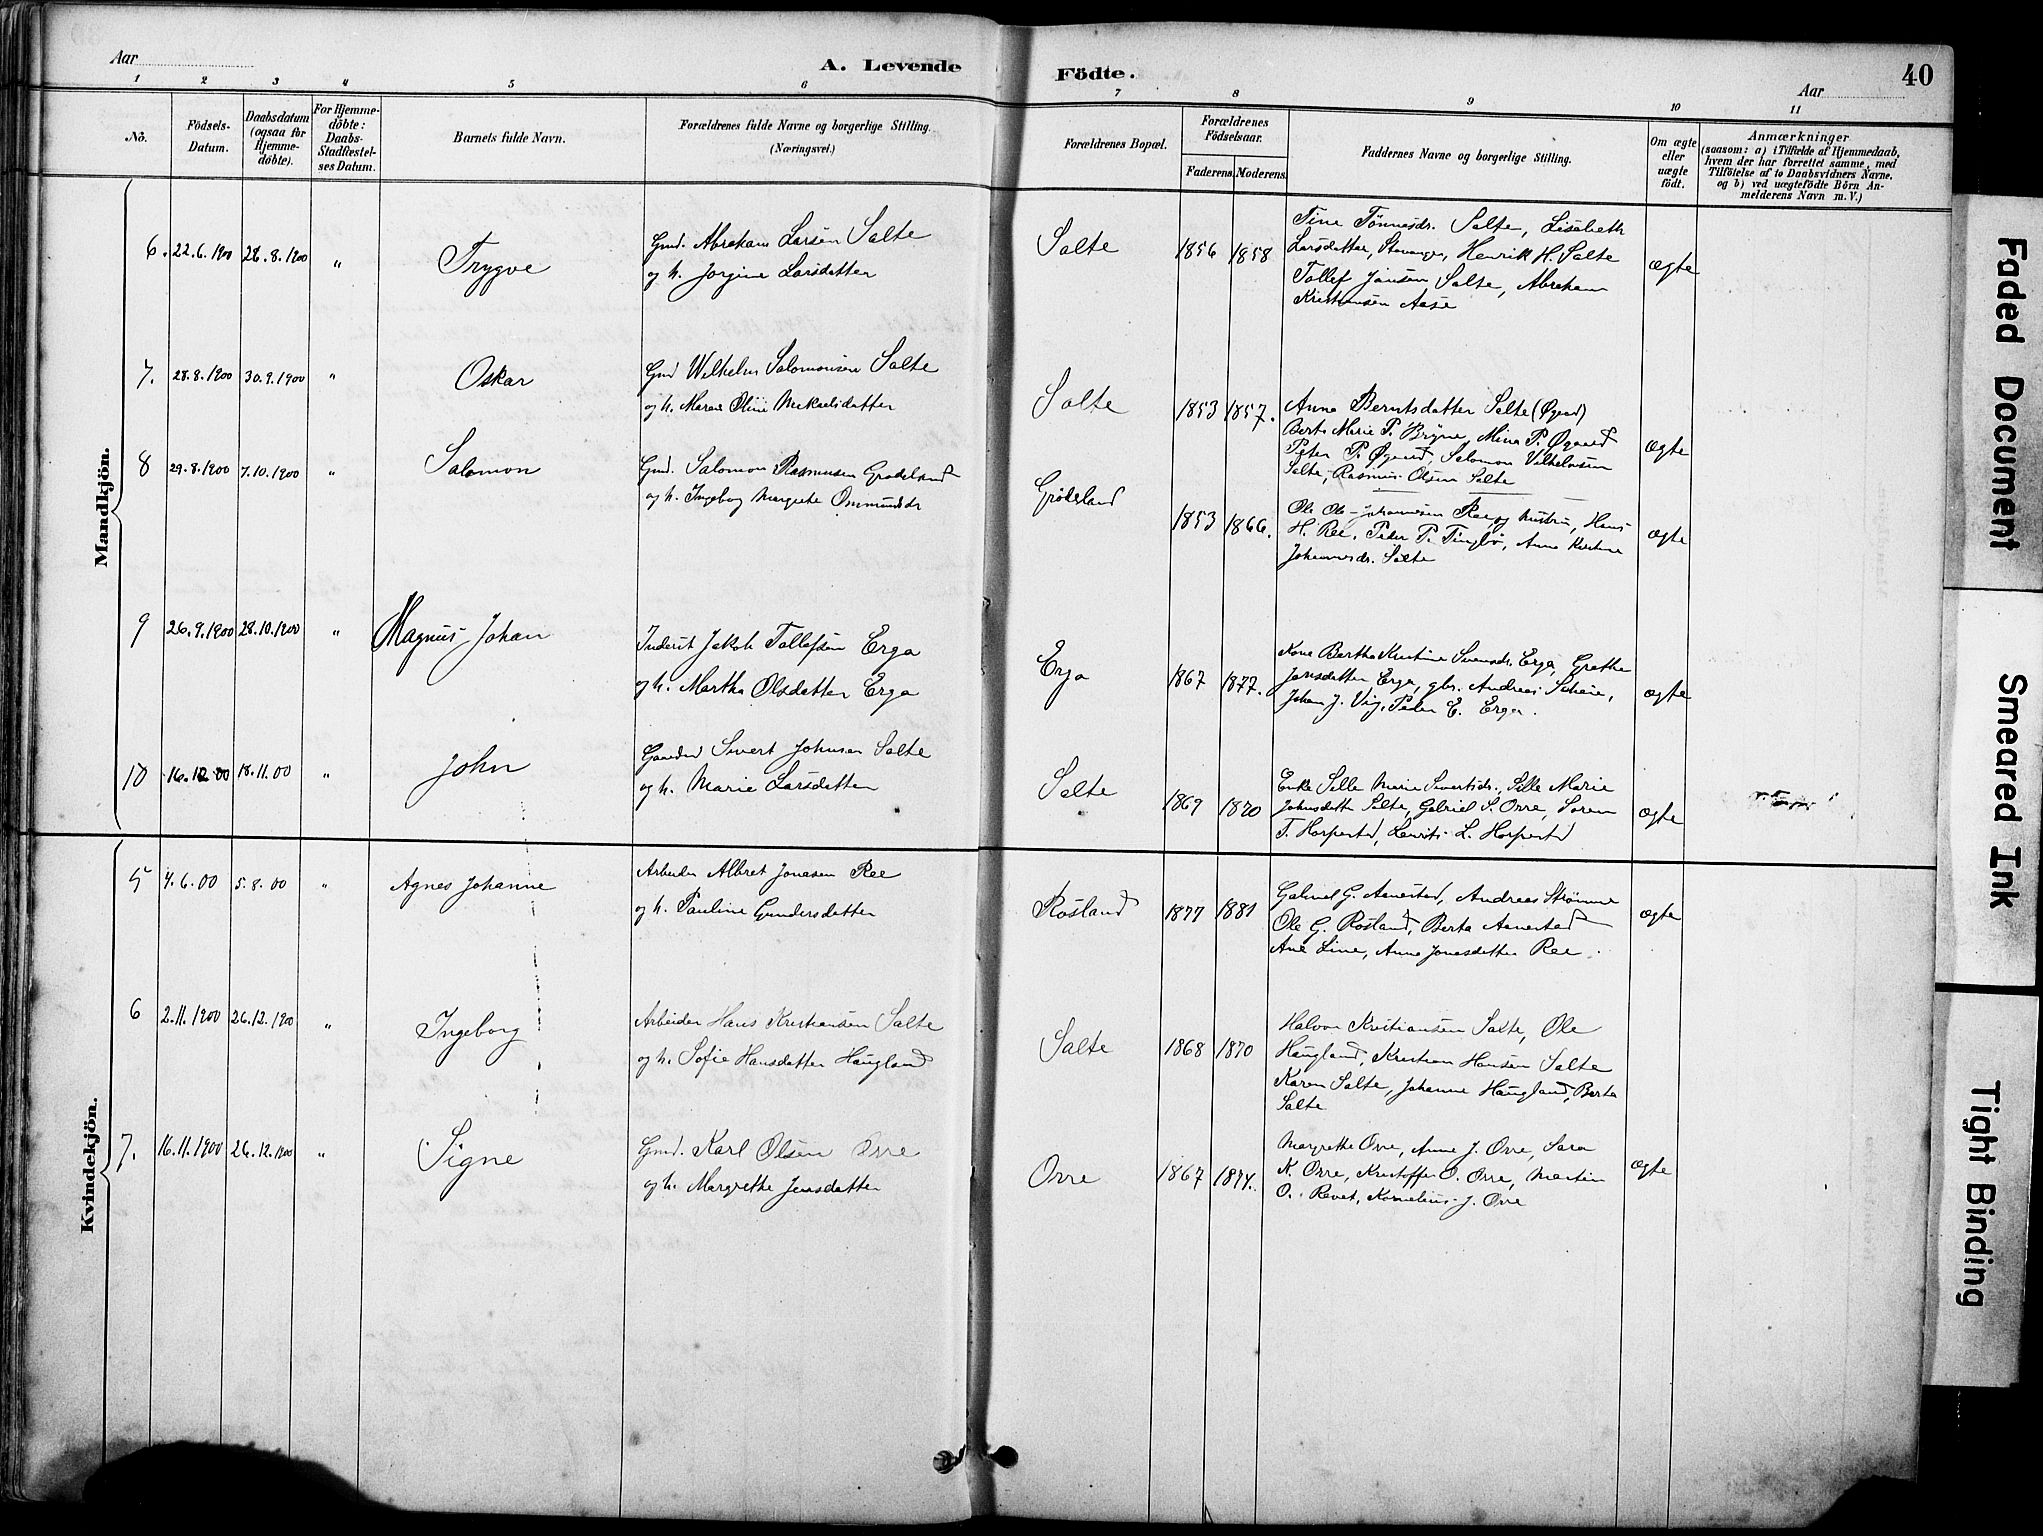 Aar
A. Levende
Födte.
Aar
40
1 2 3 4 5 6 7 8 9 10 11
No.
Födsels-Datum.
Daabsdatum (ogsaa for Hjemmedöbte).
For Hjemmedöbte: Daabs-Stadfæstelses Datum.
Barnets fulde Navn.
Forældrenes fulde Navne og borgerlige Stilling. (Næringsvei.)
Forældrenes Bopæl.
Forældrenes Födselsaar.
Faderens. Moderens.
Faddernes Navne og borgerlige Stilling.
Om ægte eller uægte födt.
Anmærkninger
(saasom: a) i Tilfælde af Hjemmedaab, hvem der har forrettet samme, med Tilföielse af to Daabsvidners Navne, og b) ved uægtefödte Börn Anmelderens Navn m. V.)
Mandkjön.
6. 22.6.1900 28.8.1900 " Trygve
Gmd. Abraham Larsen Salte
og h. Jorgine Larsdatter
Salte 1856 1858
Tine Tönnesdr. Salte, Lisabeth
Larsdatter, Stavanger, Henrik H. Salte
Tollef Jansen Salte, Abraham
Kristiansen Aase
ægte
7. 28.8.1900 30.9.1900 " Oskar
Gmd Wilhelm Salomonsen Salte
og h. Maren Oline Mikaelsdatter
Salte 1853 1857.
Anna Berntsdatter Salte (Øgaard)
Berta Marie P. Bryne, Mina P. Øgaard
Peter P. Øgaard, Salomon Vilhelmsen
Salte, Rasmus Olsen Salte
ægte
8 29.8.1900 7.10.1900 " Salomon
Gmd. Salomon Rasmusen Grødeland
og h. Ingebog Margrete Ommundsdr
Grödeland 1853 1866.
Ole Ols- Johannesen Ree og hustru, Hans
H. Ree, Peder P. Tinglbø, Anna Kirstine
Johannesdr. Salte
ægte
9 26.9.1900 28.10.1900 " Magnus Johan
Inderst Jakob Tollefsen Erga
og h. Martha Olsdatter Erga
Erga 1867 1877.
Kone Bertha Kristine Svensdr. Erga, Grethe
Jansdatter Erga, gbr. Andreas Scheie,
Johan J. Vig, Peder E. Erga.
ægte
10 16.10.00 18.11.00 " John
Gaardmd Sivert Johnsen Salte
og h. Marie Larsdatter
Salte 1869 1870
Enke Sille Marie Sivertsdr., Sille Marie
Johnsdatt Salte, Gabriel S. Orre, Soren
T. Horpestad, Lavrits L. Horpestad
ægte
Kvindekjön.
5 4.6.00 5.8.00 " Agnes Johanne
Arbeider Albret Jonasen Ree
og h. Pauline Gundersdatter
Rosland 1877 1881
Gabriel G. Aanestad, Andreas Strömme
Ole G. Rosland, Berta Aanestad
Ane Line, Anna Jonasdatter Ree.
ægte
6 2.11.1900 26.12.1900 " Ingeborg
Arbeider Hans Kristiansen Salte
og h. Sofie Hansdatter Haugland
Salte 1868 1870
Halvor Kristiansen Salte, Ole
Haugland, Kristian Hansen Salte
Karen Salte, Johanne Haugland, Berta
Salte
7. 16.11.1900 26.12.1900 " Signe
Gmd. Karl Olsen Orre
og h. Margrethe Jensdatter
Orre 1867 1874.
Margrethe Orre, Anne J. Orre, Sara
K. Orre, Kristoffer O. Orre, Martin
O. Revet, Kornelius J. Orre
ægte
Faded Document
Smeared Ink
Tight Binding